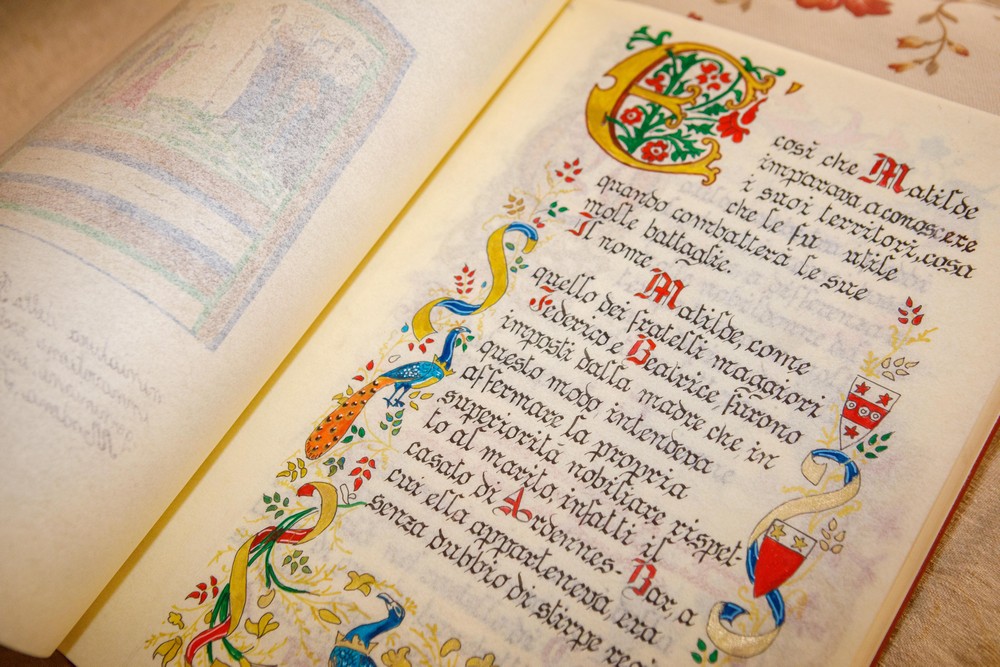 E
così che Matilde
imparava a conoscere
i suoi territori, cosa
che le fu utile
quando combatterà le sue
molte battaglie.
Il nome Matilde, come
quello dei fratelli maggiori
Federico e Beatrice furono
imposti dalla madre che in
questo modo intendeva
affermare la propria
superiorità nobiliare rispet-
to al marito, infatti il
casato di Ardennes-Bar, a
cui ella apparteneva, era
senza dubbio di stirpe regi